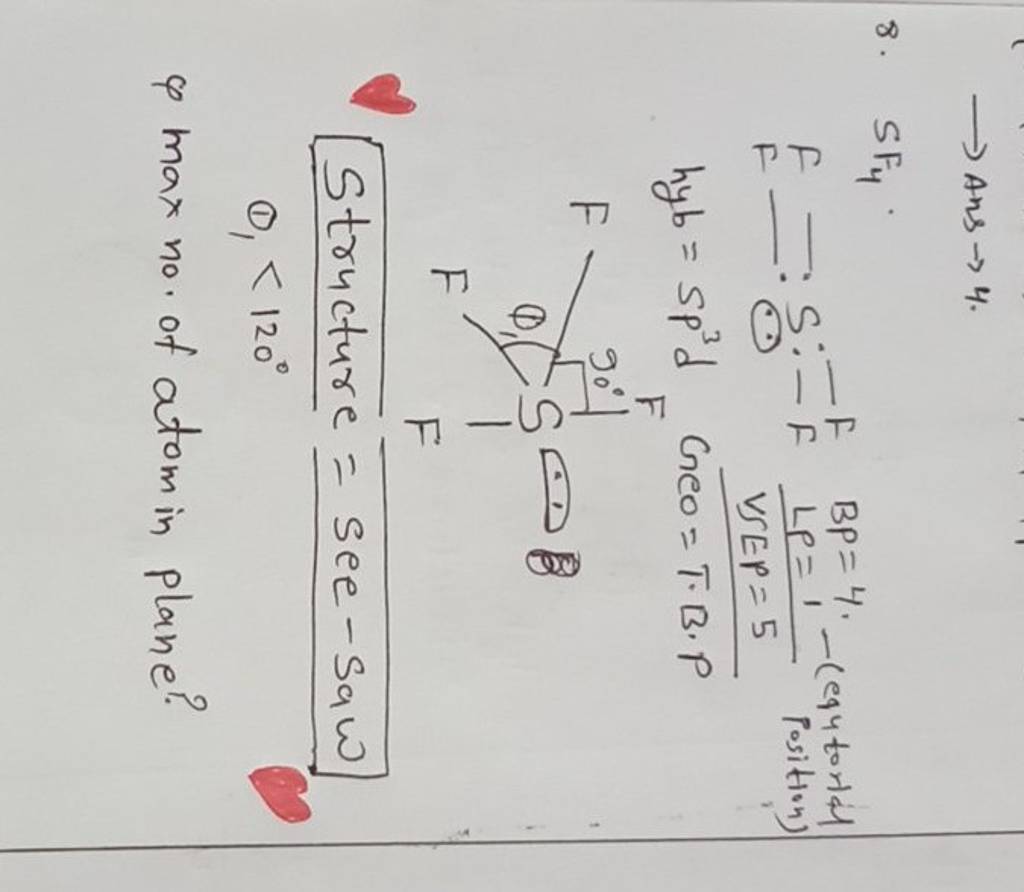 → Ans → 4.
8. SF4.
F F S F F
BP = 4.
LP = 1 - (equtorial position)
VSEP = 5
hyb = sp³d Geo = T.B.P
F 90° F
F θ1 S
F
Structure = See-Saw
θ1 < 120°
φ max no. of atom in plane?